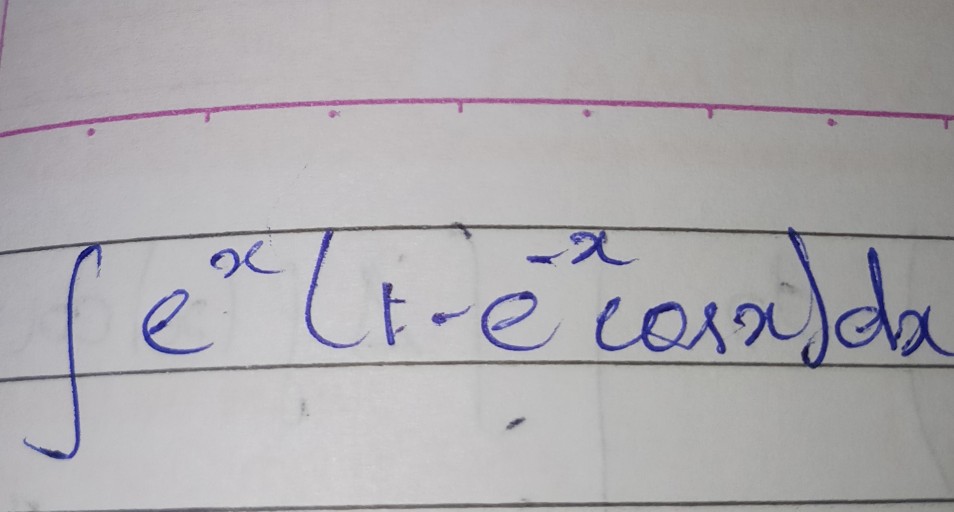 ∫ eˣ (1 - e⁻ˣ cosx) dx